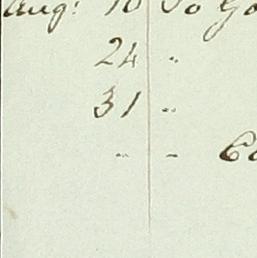 Aug: 10 To Go
24 "
31 "
" " Ca